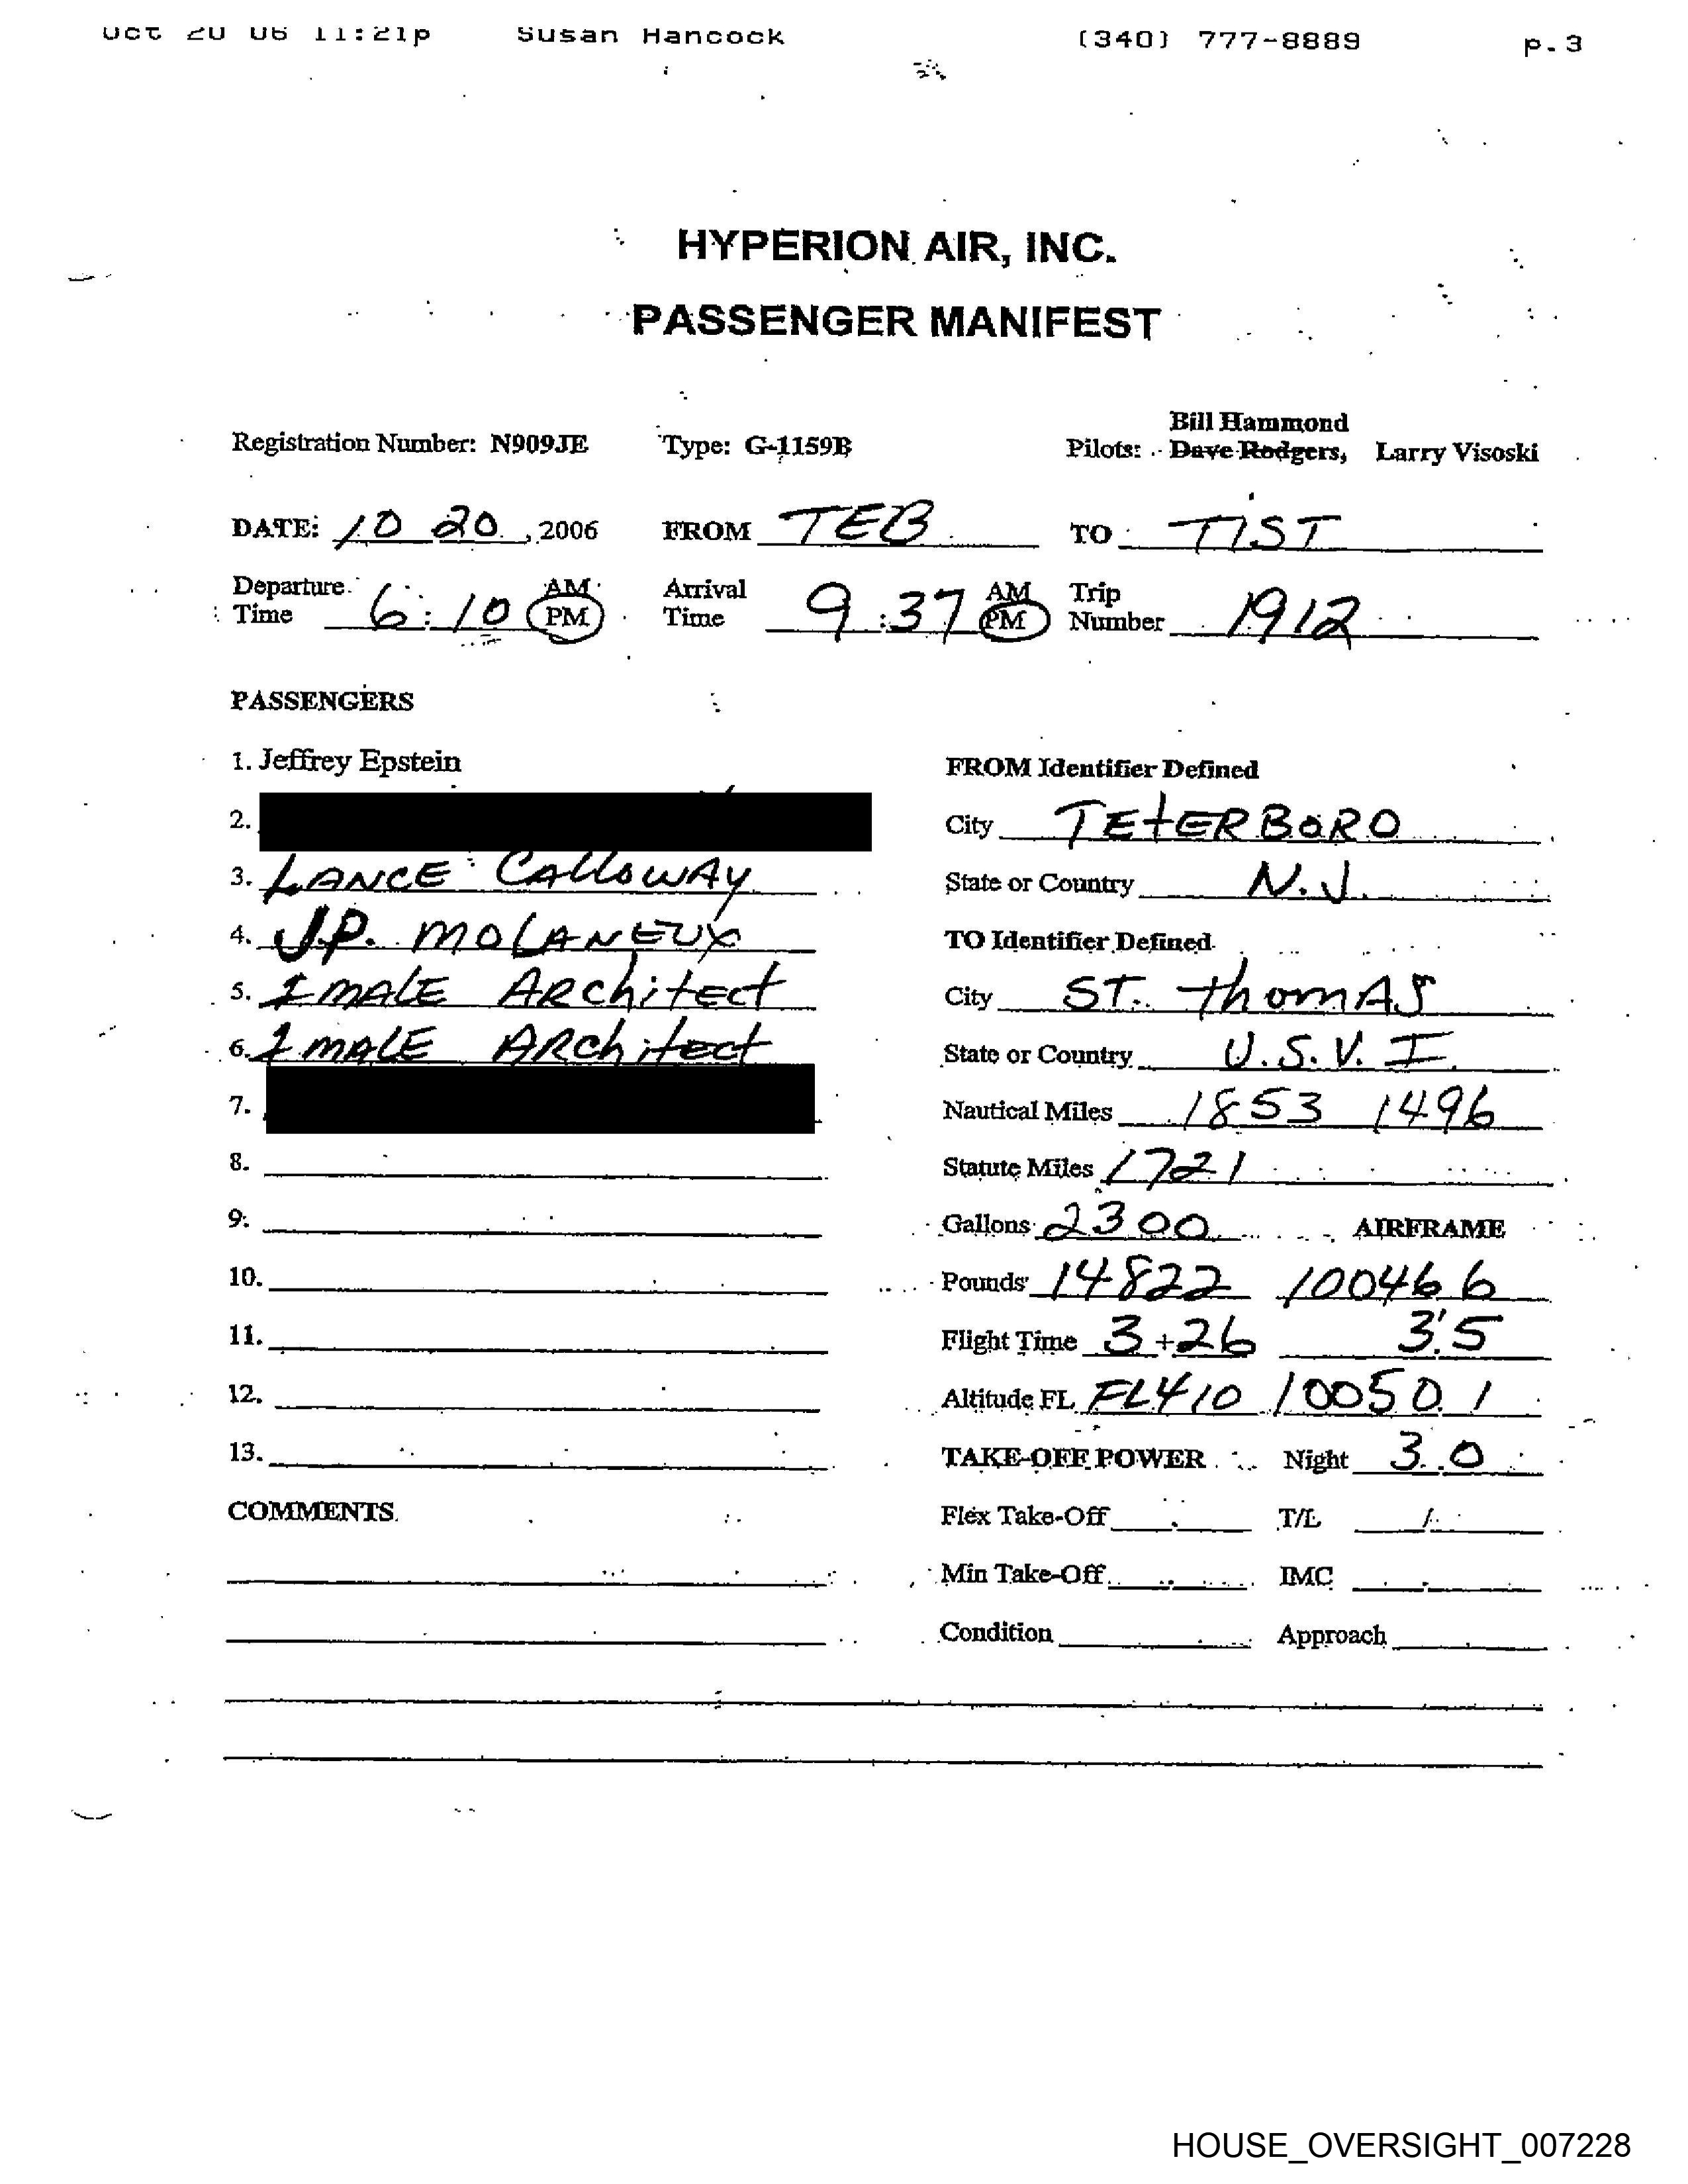 Oct 20 06 11:21p Susan Hancock (340) 777-8889 p.3
HYPERION AIR, INC.
PASSENGER MANIFEST
Bill Hammond
Registration Number: N909JE Type: G-1159B Pilots: Dave Rodgers, Larry Visoski
DATE: 10 20, 2006 FROM TEB TO TIST
Departure Time 6:10 AM PM Arrival Time 9:37 AM PM Trip Number 1912
PASSENGERS
1. Jeffrey Epstein
2.
3. LANCE CALLOWAY
4. J.P. MOLANEUX
5. 1 MALE ARchitect
6. 1 MALE ARchitect
7.
8.
9.
10.
11.
12.
13.
COMMENTS
FROM Identifier Defined
City TEtERBORO
State or Country N.J.
TO Identifier Defined
City ST. thomAS
State or Country U.S.V.I.
Nautical Miles 1853 1496
Statute Miles 1721
Gallons 2300 AIRFRAME
Pounds 14822 10046.6
Flight Time 3+26 3.5
Altitude FL FL410 10050.1
TAKE-OFF POWER Night 3.0
Flex Take-Off T/L 1
Min Take-Off IMC
Condition Approach
HOUSE_OVERSIGHT_007228